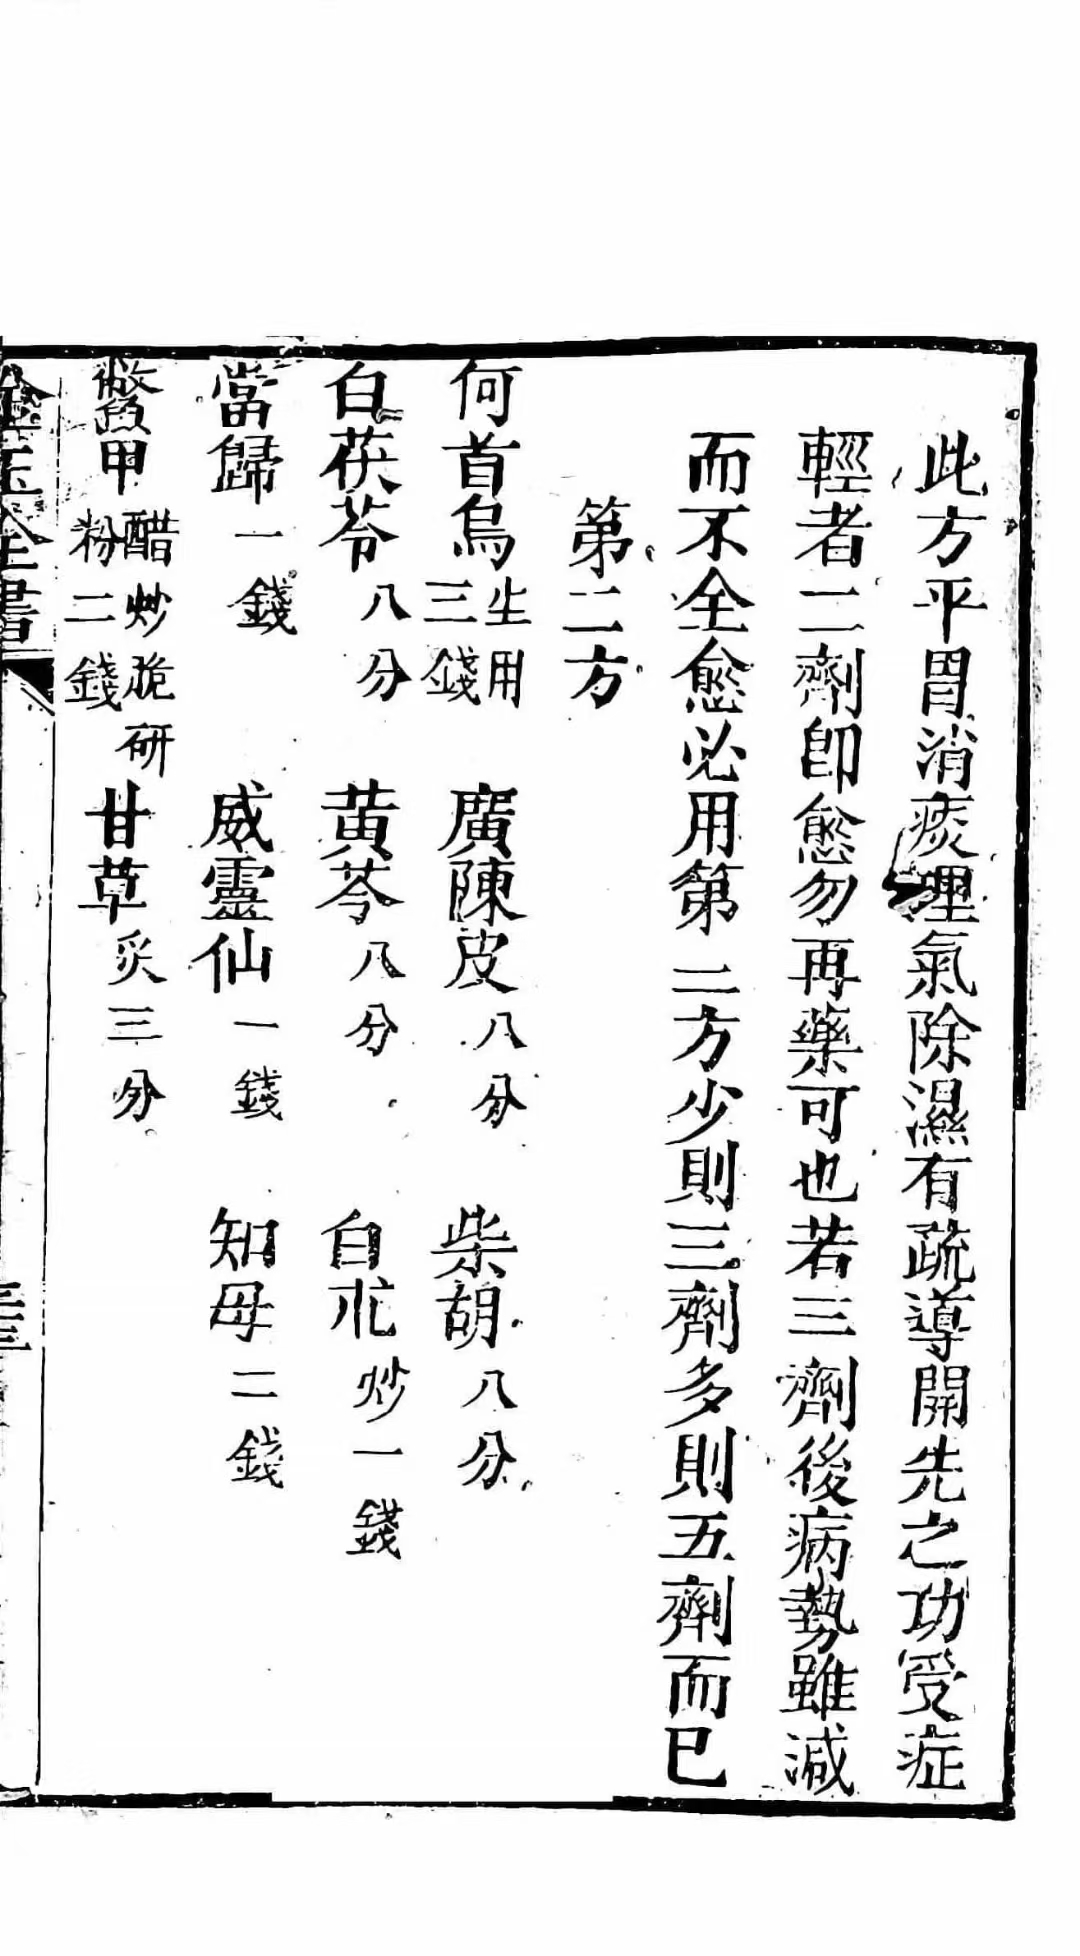 此方平胃消痰理氣除濕有疏導開先之功受症
輕者二劑卽愈勿再藥可也若三劑後病勢雖減
而不全愈必用第二方少則三劑多則五劑而已
第二方
何首烏生用三錢 廣陳皮八分 柴胡八分
白茯苓八分 黄芩八分 白朮炒一錢
當歸一錢 威靈仙一錢 知母二錢
鱉甲醋炒脆研粉二錢 甘草炙三分